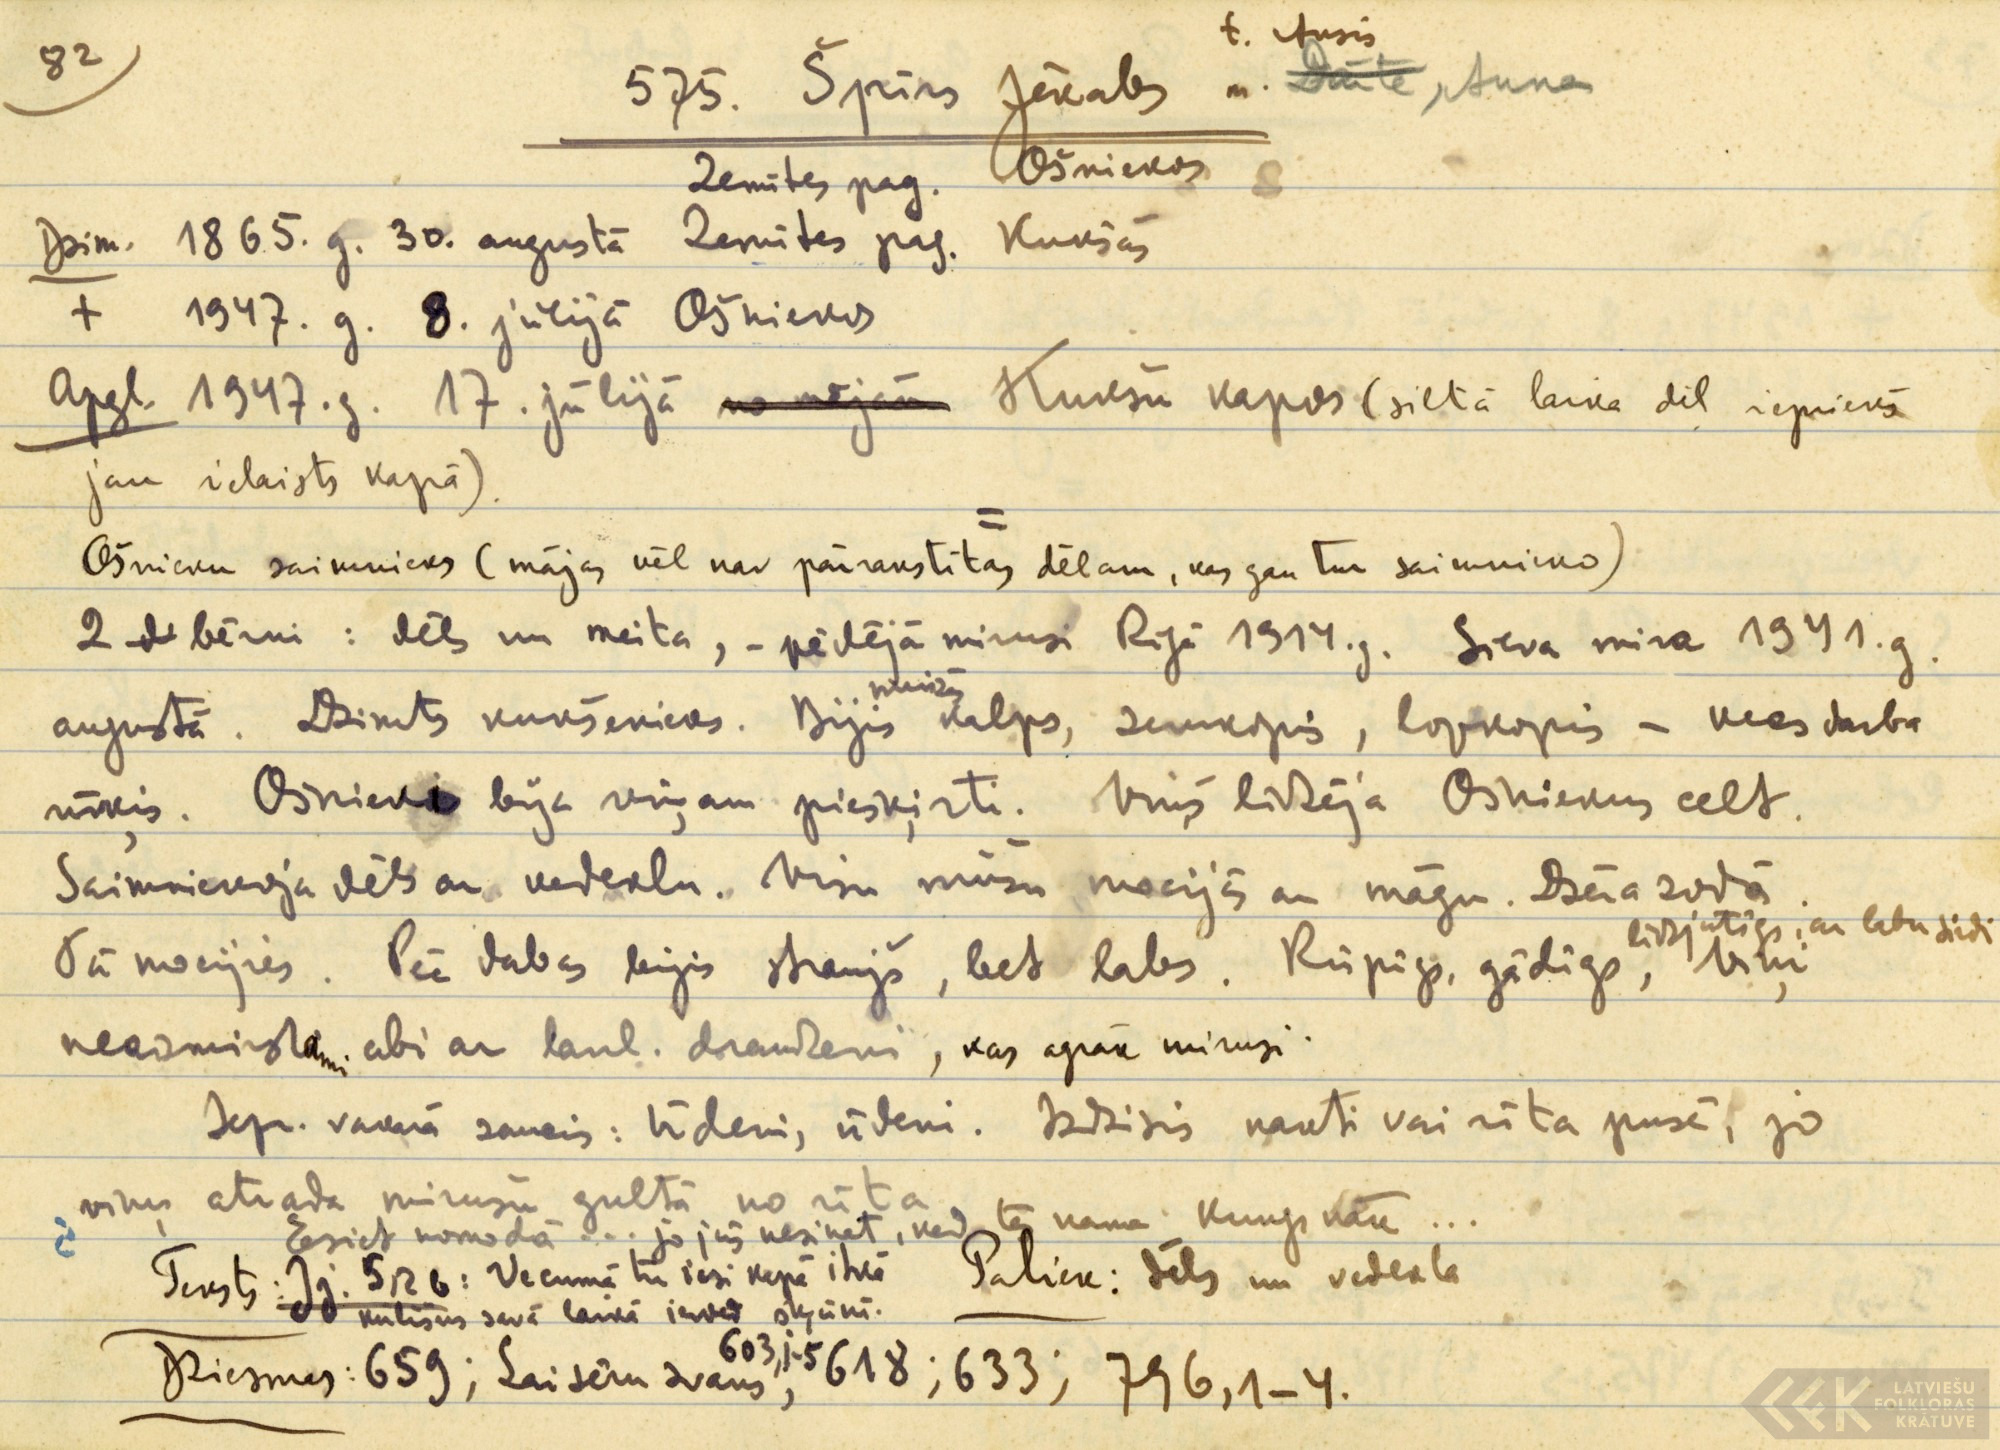 82
t. Ansis
575. Špīrs Jēkabs m. Dārtē, Anna
Zemītes pag. Ošniekos
Dzim. 1865. g. 30. augustā Zemītes pag. Kukšās
+ 1947. g. 8. jūlijā Ošniekos
Apgl. 1947. g. 17. jūlijā no mājām Kukšu kapos (siltā laika dēļ iepriekš
jau ielaists kapā).
Ošnieku saimnieks (mājas vēl nav pārrakstītas dēlam, kas gan tur saimnieko)
2 bērni: dēls un meita, - pēdējā mirusi Rīgā 1914. g. Sieva mira 1941. g.
augustā. Dzimts kukšenieks. Bijis muižas kalps, zemkopis, lopkopis - veas darba
rūķis. Ošnieki bija viņam piešķirti. Viņš līdzēja Ošniekus celt.
Saimniekoja dēls ar vedeklu. Visu mūžu mocijās ar māgu. Dzēra sodā.
Tā mocijies. Pēc dabas bijis straujš, bet labs. Rūpīgs, gādīgs, līdzjutīgs, ar labu sirdi Viņi
neaizmirstami abi ar laul. draudzeni, kas agrāk mirusi.
Iepr. vakarā saucis: ūdeni, ūdeni. Izdzisis naktī vai rīta pusē, jo
viņu atrada mirušu gultā no rīta
Esiet nomodā ... jo jūs nezinat, kad tā nama kungs nāk ...
Teksts: Ij. 5,26: Vecumā tu iesi kapā itkā Paliek: dēls un vedekla
kulīšus savā laikā ieved šķūnī.
Dziesmas: 659; Lai sēru zvans, 603,j-5 618; 633; 796,1-4.
LATVIEŠU
FOLKLORAS
KRĀTUVE